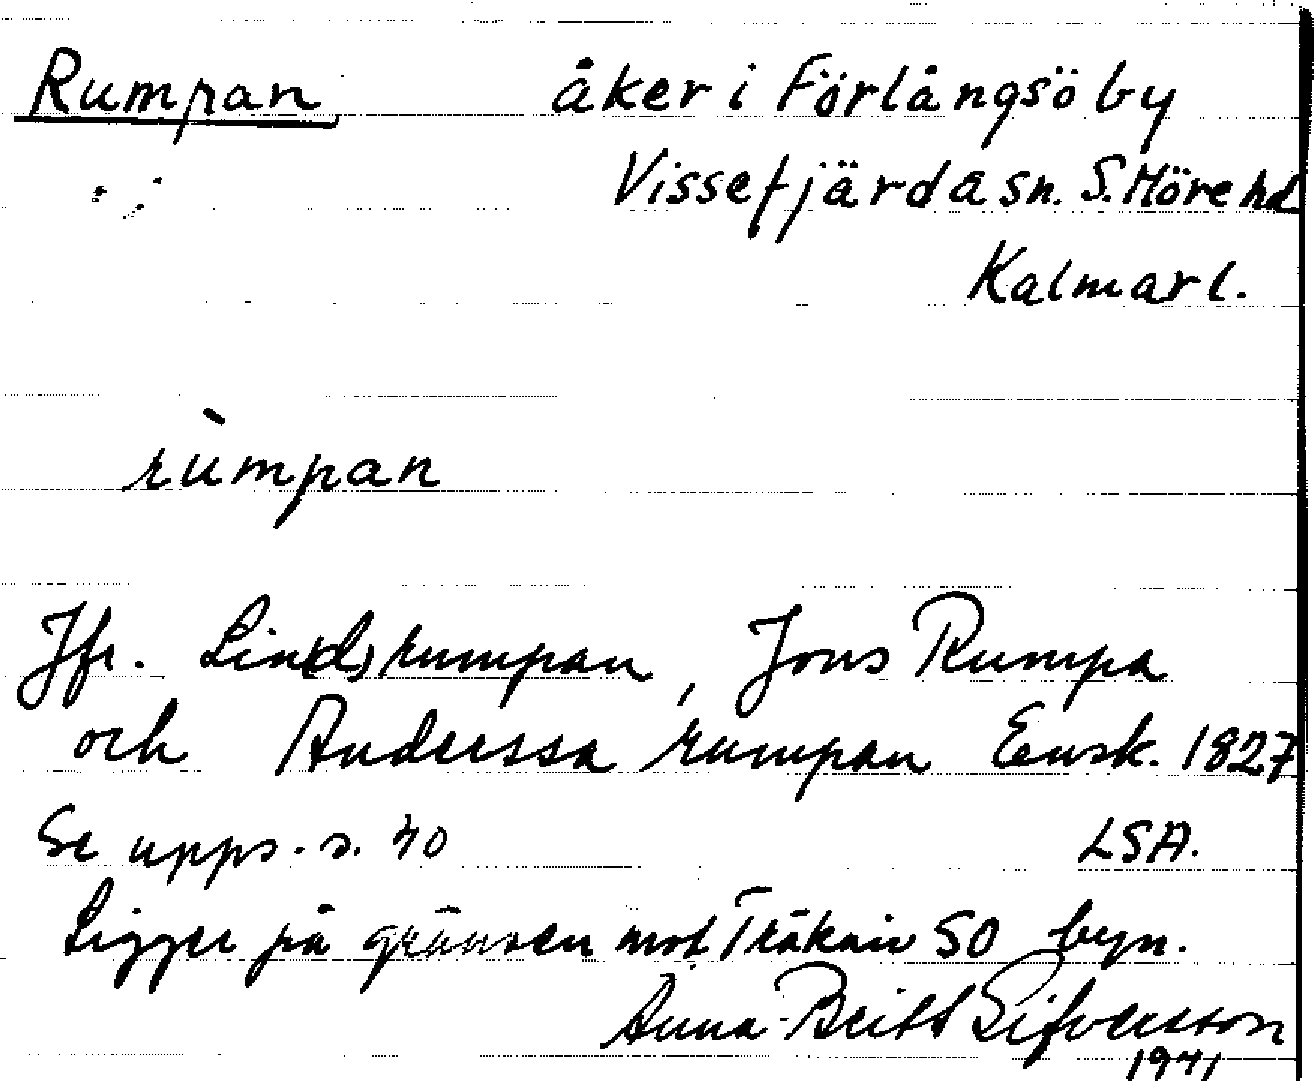 Rumpan åker i Förlångsö by
Vissefjärda sn. S. Möre hd
Kalmar l.
rùmpan
Jfr. Lin(d)rumpan, Jons Rumpa
och Anderssa rumpan Ensk. 1827
Se upps. s. 40 LSA.
Ligger på gränsen mot SO byn.
Anna-Britt Sifversson
1941